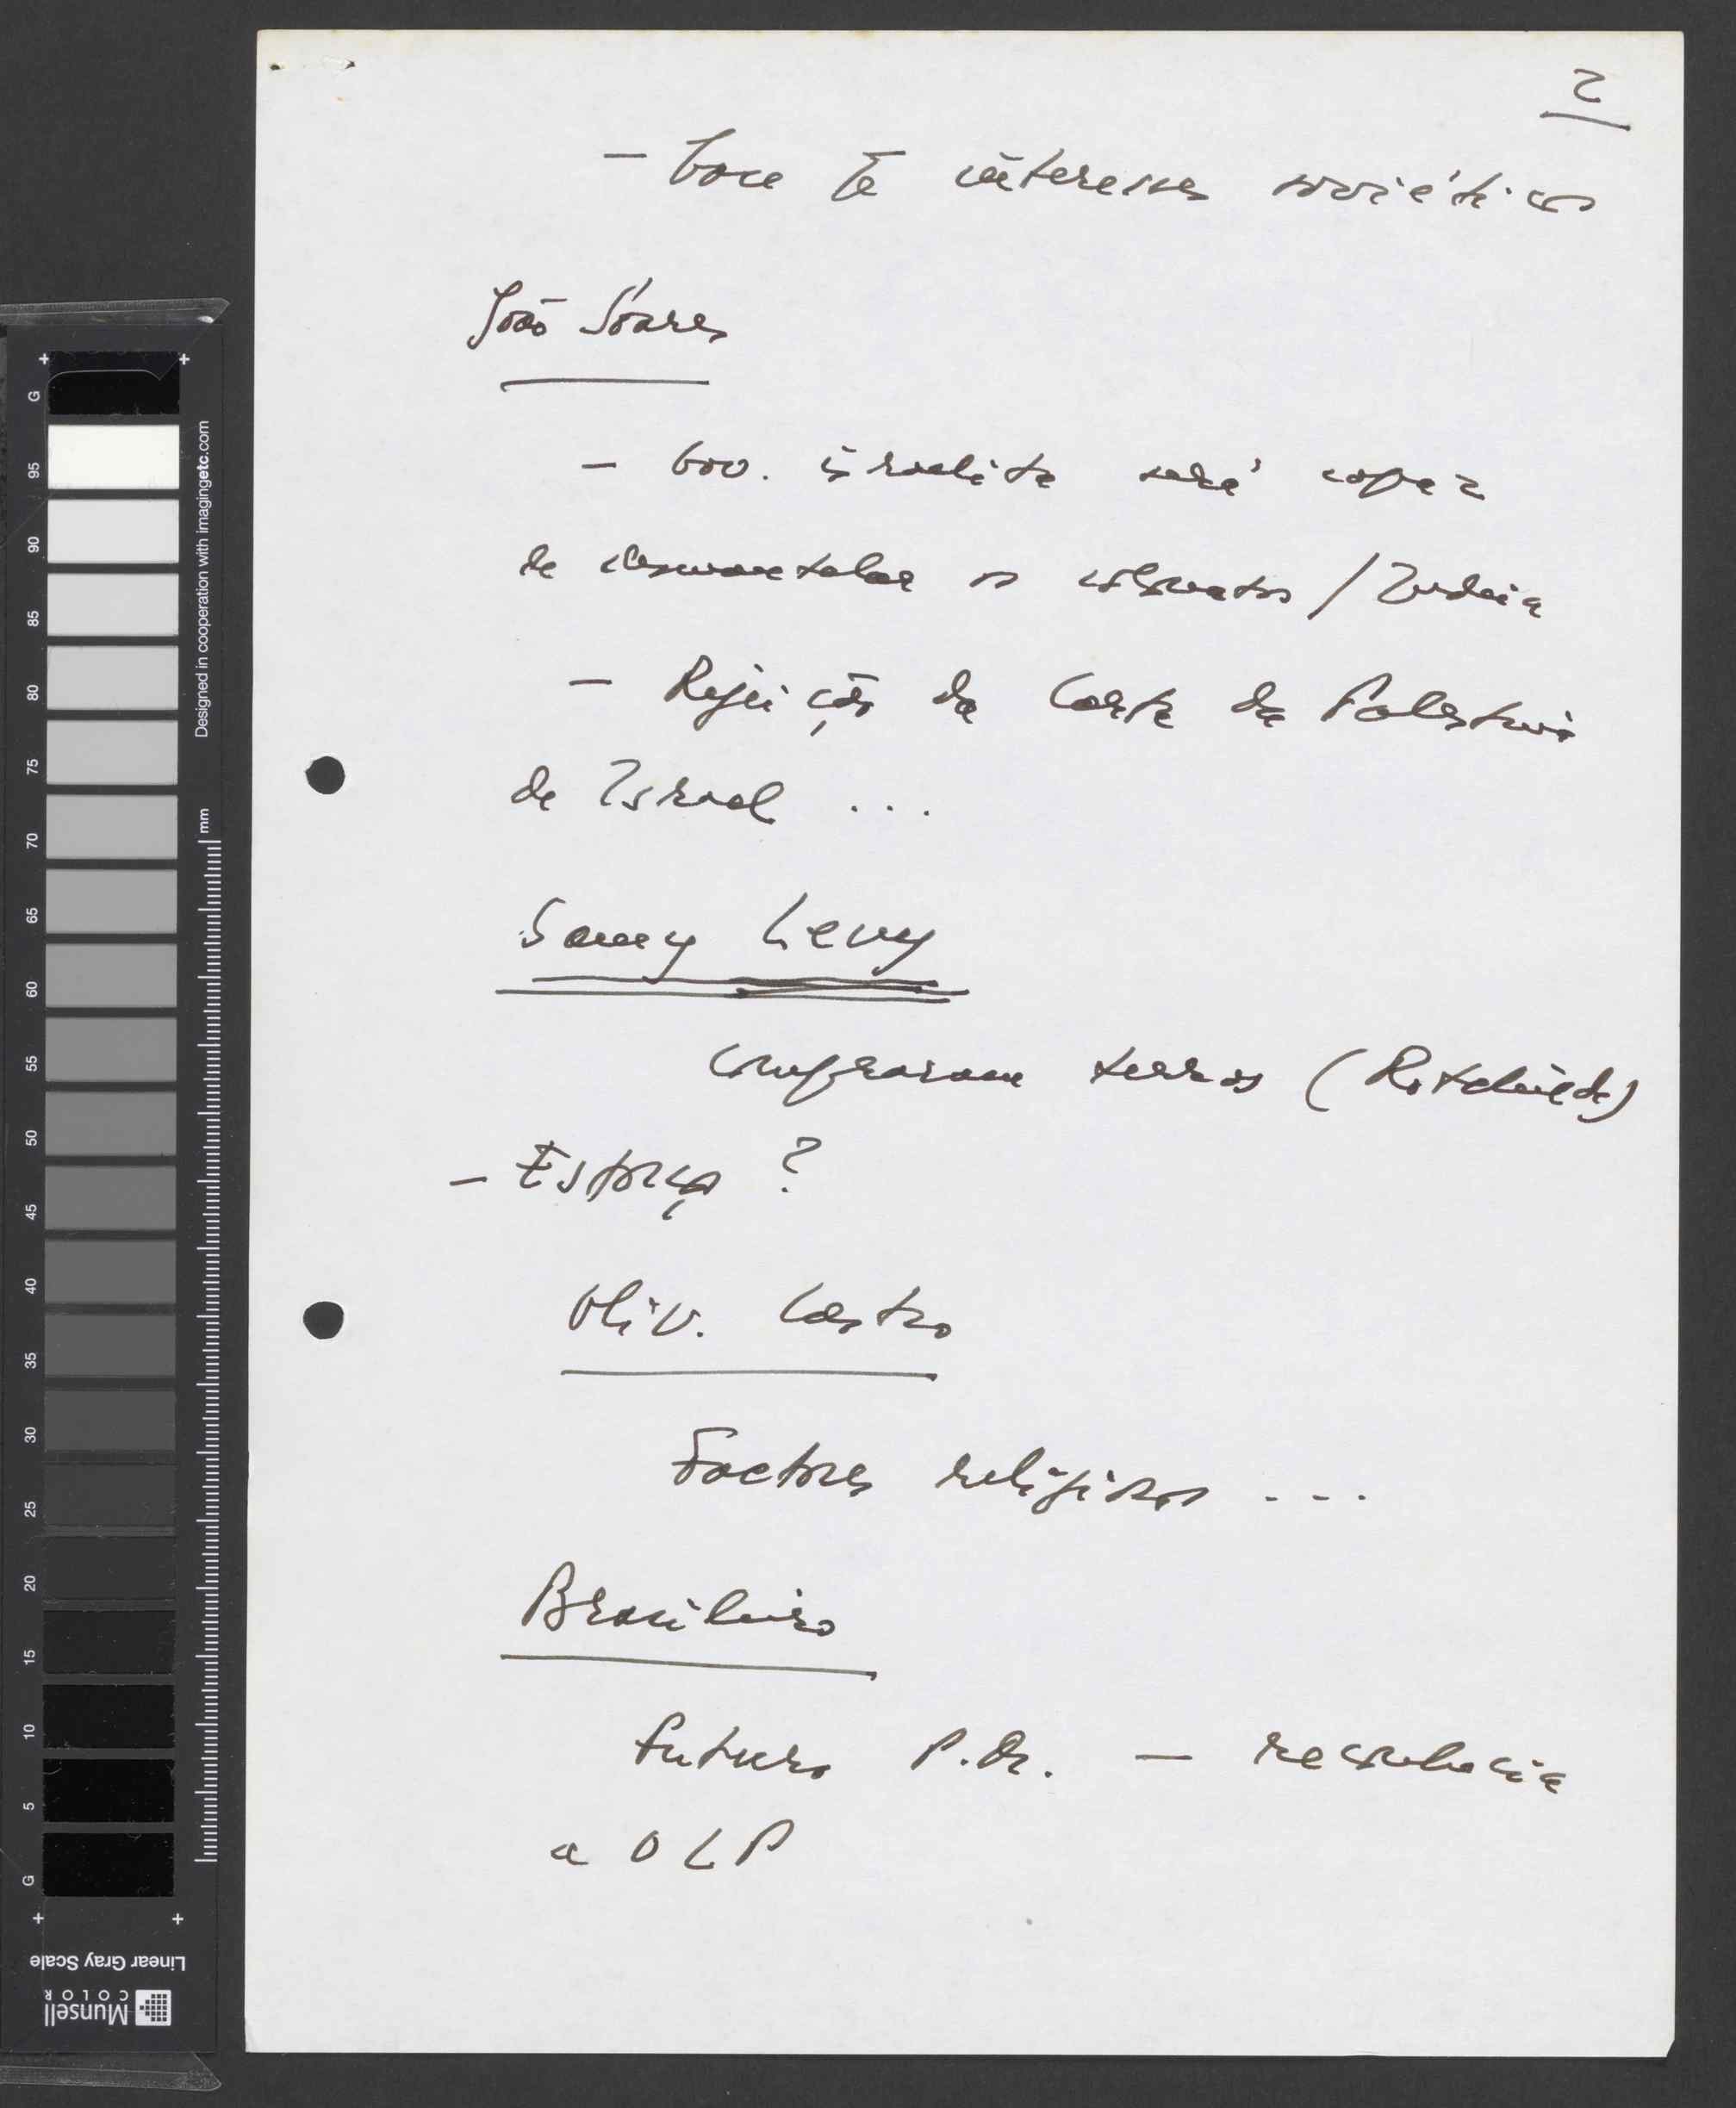 2
— tem interesses soviéticos
João Soares
— Gov. israelita será capaz
de desmantelar os colonatos / Judeia
— Rejeição da Carta da Palestina
de Israel ...
Samy Levy
Compraram terras (Rotchield)
— Esforço ?
Oliv. Castro
Factores religiosos ...
Brasileiro
futuro P.R. — reconhecia
a OLP
G
95
90
85
80
75
70
65
60
55
50
45
40
35
30
25
20
15
10
5
G
Designed in cooperation with imagingetc.com
mm
Linear Gray Scale
Munsell
COLOR